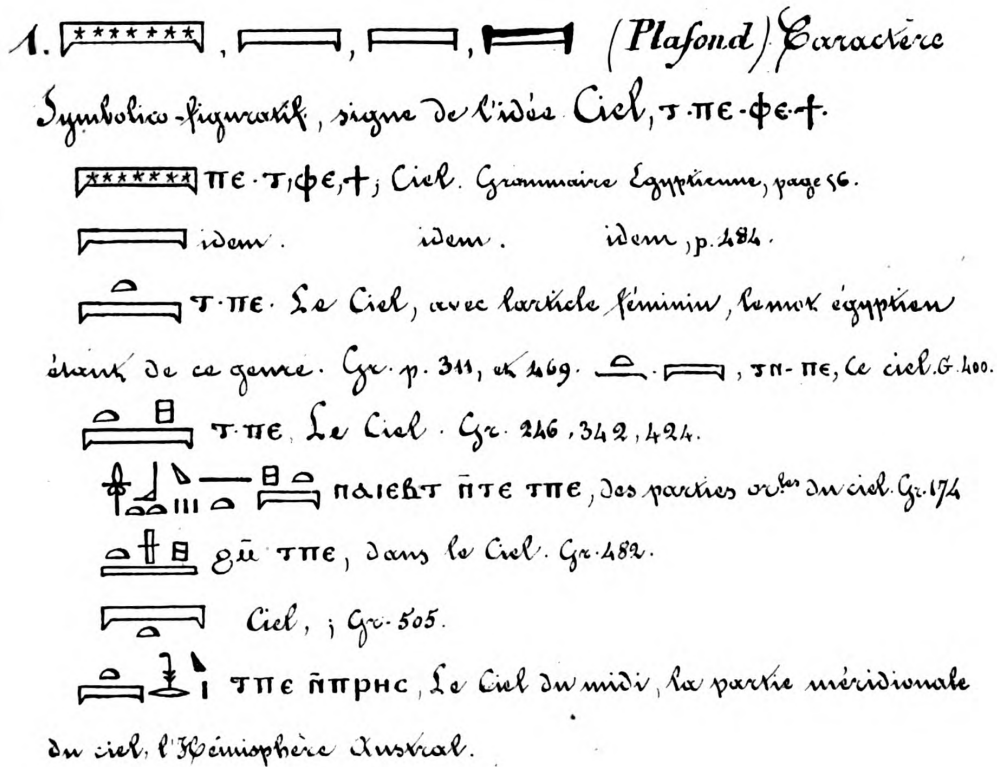 1. 𓇯, 𓇯, 𓇯, 𓇯 (Plafond) Caractère
Symbolico-figuratif, signe de l'idée Ciel, ⲧ·ⲡⲉ-ⲫⲉ·ϯ.
𓇯 ⲡⲉ·ⲧ,ⲫⲉ,ϯ; Ciel. Grammaire Egyptienne, page 56.
𓇯 idem. idem. idem, p. 484.
𓏏𓇯 ⲧ·ⲡⲉ. Le Ciel, avec l'article féminin, le mot égyptien
étant de ce genre. Gr. p. 311, et 469. 𓏏 𓇯, ⲧⲛ-ⲡⲉ, Ce ciel. G. 400.
𓏏𓊪𓇯 ⲧ·ⲡⲉ, Le Ciel. Gr. 246, 342, 424.
ⲛⲁⲓⲉⲃⲧ ⲛ̄ⲧⲉ ⲧⲡⲉ, des parties or.les du ciel. Gr. 174
ϩⲙ̄ ⲧⲡⲉ, dans le Ciel. Gr. 482.
𓇯𓏏 Ciel, ; Gr. 505.
ⲧⲡⲉ ⲙ̄ⲡⲣⲏⲥ, Le Ciel du midi, la partie méridionale
du ciel, l'Hémisphère Austral.